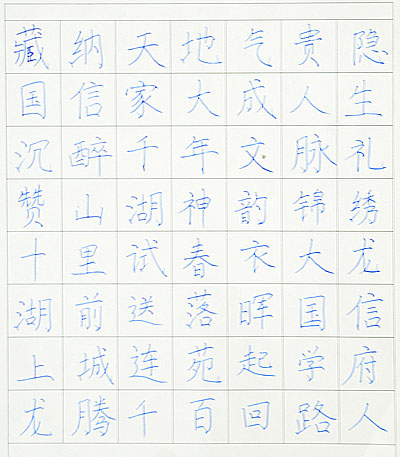 藏纳天地气贵隐
国信家大成人生
沉醉千年文脉礼
赞山湖神韵锦绣
十里试春衣大龙
湖前送落晖国信
上城连苑起学府
龙腾千百回路人